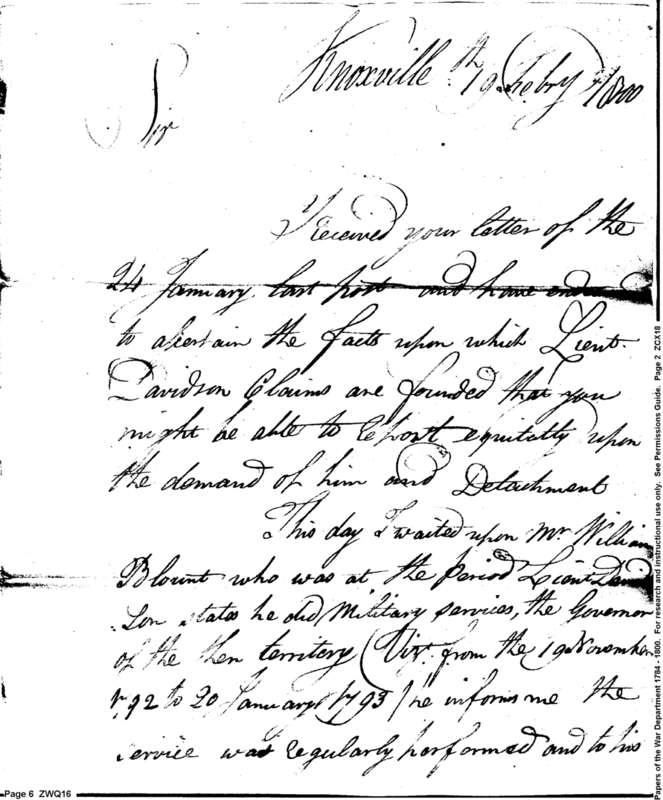 Knoxville 19th Feby 1800
Sir
I received your letter of the
24 January last post and have
to assertain the facts upon which Lieut.
Davidson Claims are founded that you
might be able to report equitably upon
the demand of him and Detachment
This day I waited upon Mr. William
Blount who was at the period Lieut David
son states he did Military services, the Governor
of the then territory (Vizt. from the 19 November
1792 to 20 January 1793) he informs me the
service was regularly performed and to his
Page 6 ZWQ16
Papers of the War Department 1784 - 1800. For research and instructional use only. See Permissions Guide. Page 2 ZCX18